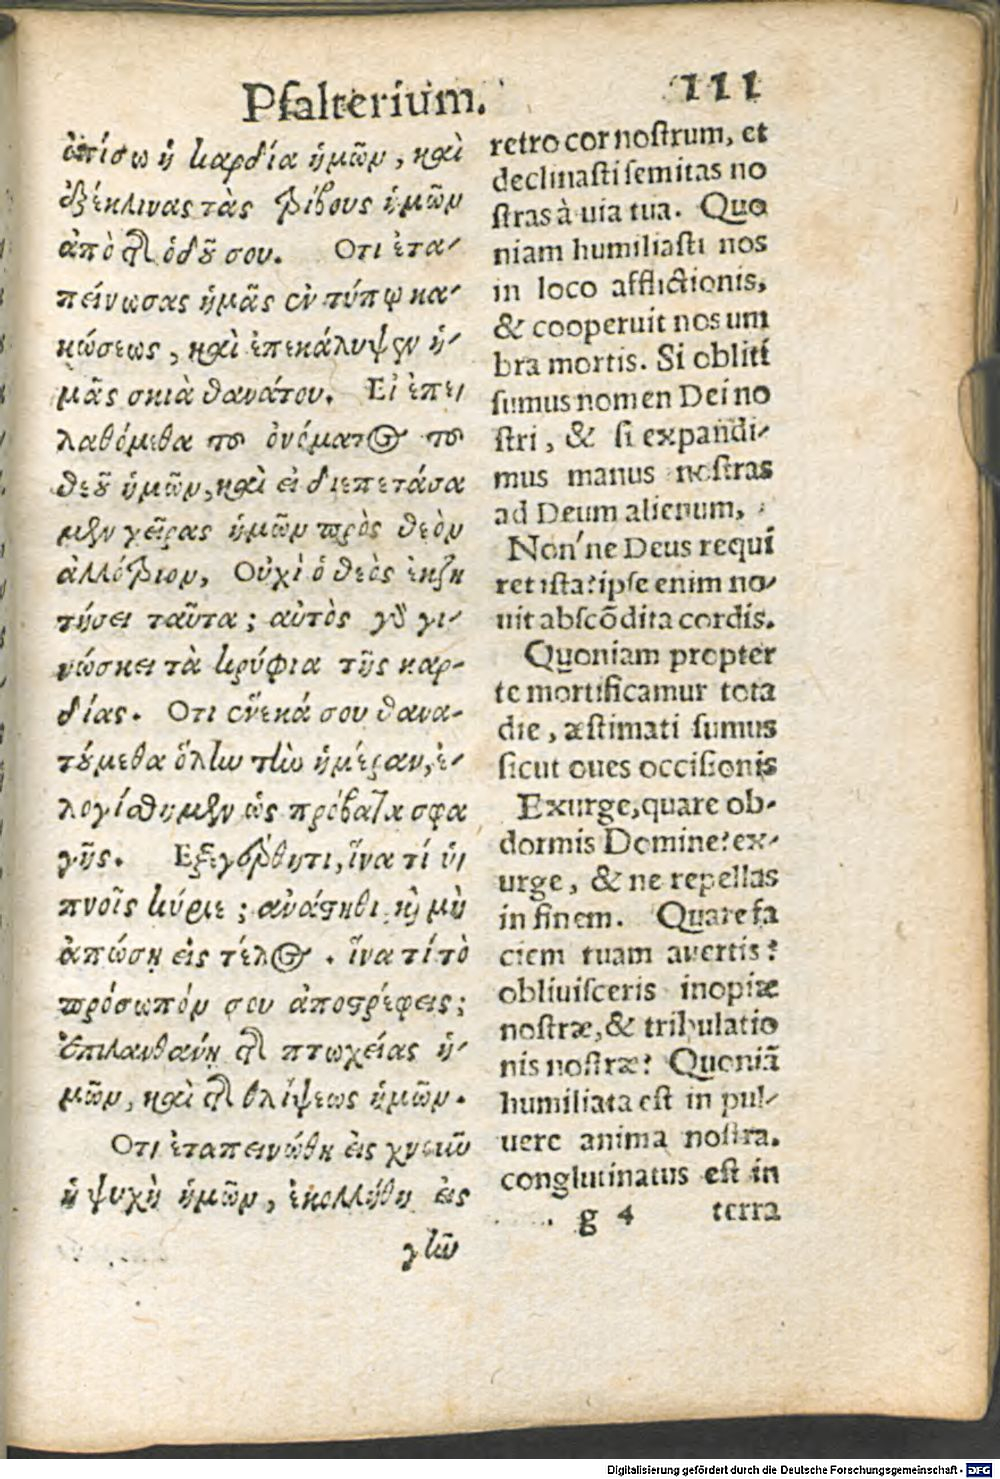 Psalterium. 111
ὀπίσω ἡ καρδία ἡμῶν, καὶ
ἐξέκλινας τὰς τρίβους ἡμῶν
ἀπὸ τῆς ὁδοῦ σου. Οτι ἐτα-
πείνωσας ἡμᾶς ἐν τόπῳ κα-
κώσεως, καὶ ἐπεκάλυψεν ἡ-
μᾶς σκιὰ θανάτου. Εἰ ἐπε
λαθόμεθα τοῦ ὀνόματος τοῦ
θεοῦ ἡμῶν, καὶ εἰ διεπετάσα
μεν χεῖρας ἡμῶν πρὸς θεὸν
ἀλλότριον, Οὐχὶ ὁ θεὸς ἐκζη
τήσει ταῦτα; αὐτὸς γὰρ γι-
νώσκει τὰ κρύφια τῆς καρ-
δίας. Οτι ἕνεκά σου θανα-
τούμεθα ὅλην τὴν ἡμέραν, ἐ-
λογίσθημεν ὡς πρόβατα σφα
γῆς. Εξεγέρθητι, ἵνα τί ὑ
πνοῖς κύριε; ἀνάστηθι καὶ μὴ
ἀπώσῃ εἰς τέλος. ἵνα τί τὸ
πρόσωπόν σου ἀποστρέφεις;
ἐπιλανθάνῃ τῆς πτωχείας ἡ-
μῶν, καὶ τῆς θλίψεως ἡμῶν.
Οτι ἐταπεινώθη εἰς χνοῦν
ἡ ψυχὴ ἡμῶν, ἐκολλήθη εἰς
γῆν
retro cor nostrum, et
declinasti semitas no
stras à uia tua. Quo
niam humiliasti nos
in loco afflictionis,
& cooperuit nos um
bra mortis. Si obliti
sumus nomen Dei no
stri, & si expandi-
mus manus nostras
ad Deum alienum,
Non'ne Deus requi
ret ista? ipse enim no-
uit abscõdita cordis.
Quoniam propter
te mortificamur tota
die, æstimati sumus
sicut oues occisionis
Exurge, quare ob-
dormis Domine? ex-
urge, & ne repellas
in finem. Quare fa
ciem tuam auertis?
obliuisceris inopiæ
nostræ, & tribulatio
nis nostræ? Quoniã
humiliata est in pul-
uere anima nostra.
conglutinatus est in
g 4 terra
Digitalisierung gefördert durch die Deutsche Forschungsgemeinschaft - DFG